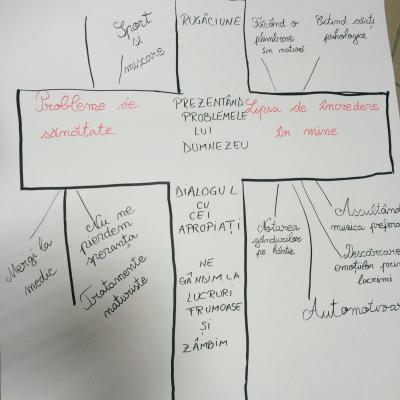 Sport
și
mișcare
RUGĂCIUNE
Făcând o
plimbare
în natură
Citind cărți
psihologice
Probleme de
sănătate
PREZENTÂND
PROBLEMELE
LUI
DUMNEZEU
Lipsa de încredere
în mine
DIALOGUL
CU
CEI
APROPIAȚI
NE
GÂNDIM LA
LUCRURI
FRUMOASE
ȘI
ZÂMBIM
Mergi la
medic
Nu ne
pierdem
speranța
Tratamente
naturiste
Notarea
gândurilor
pe hârtie
Ascultând
muzica prefera
Descărcarea
emoțiilor prin
lacrimi
Automotivar